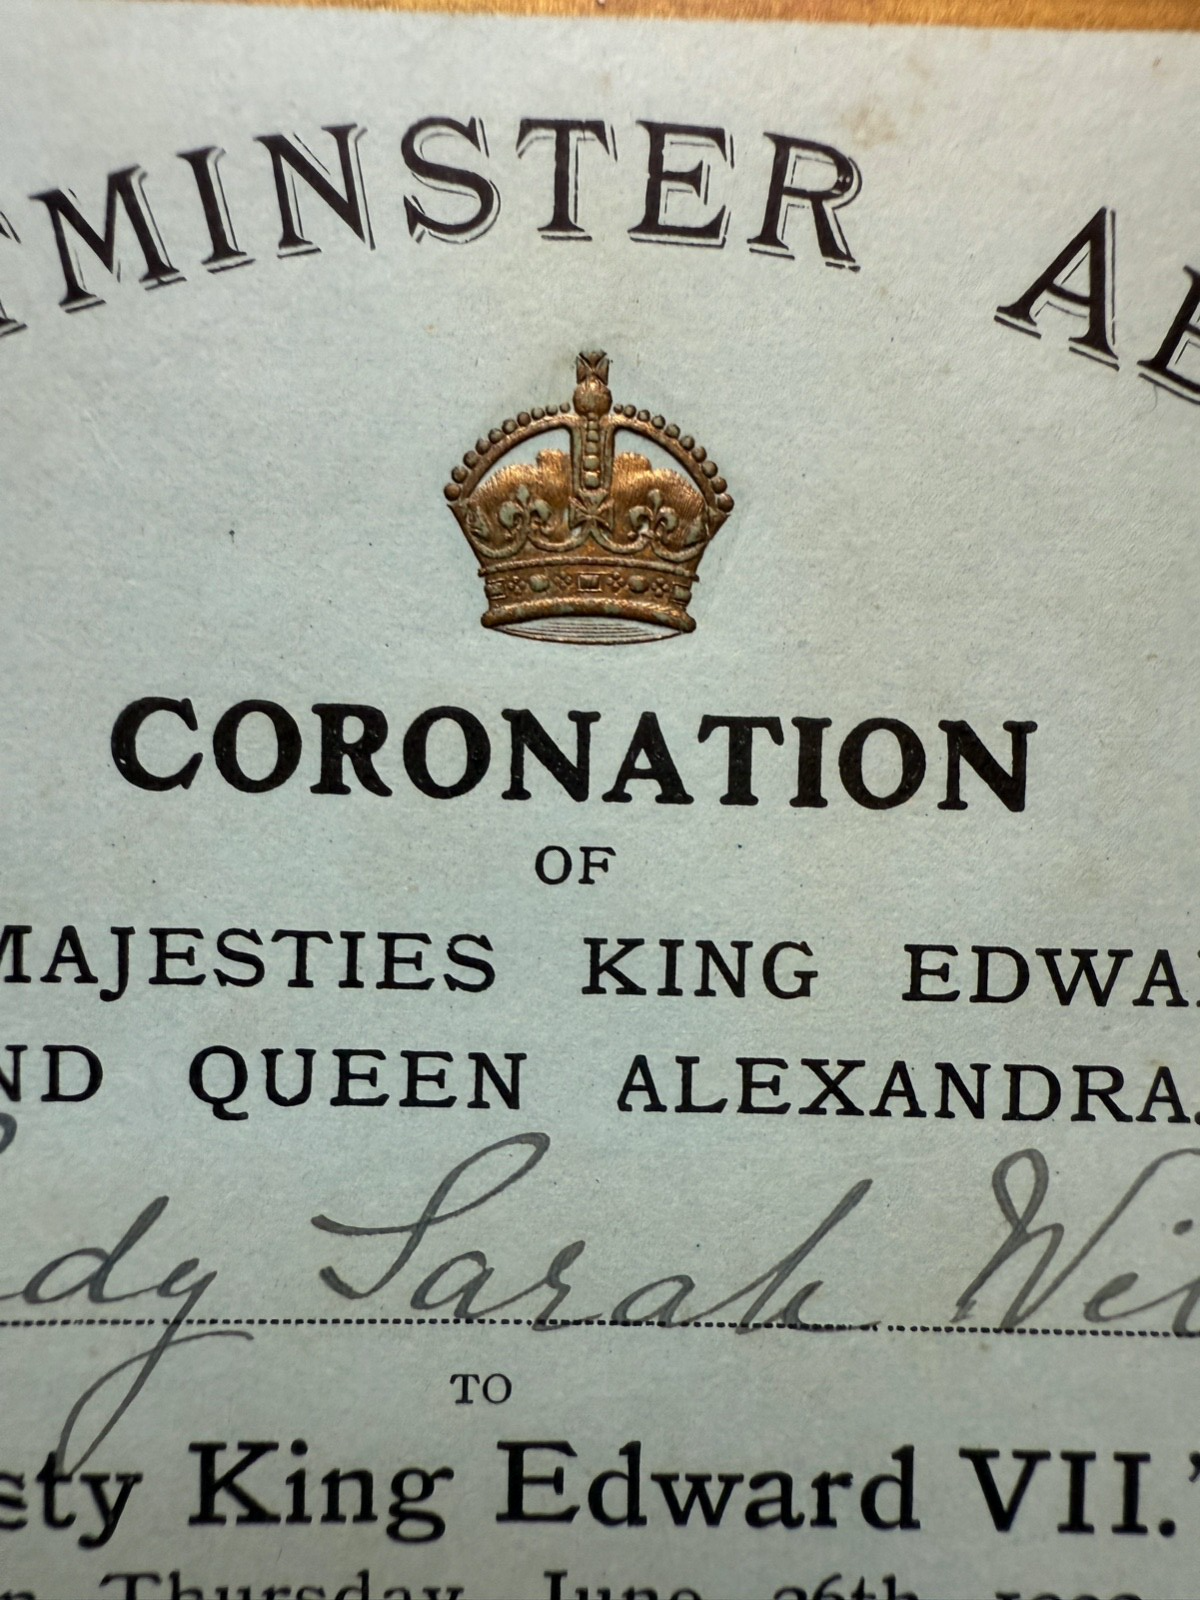 TMINSTER AB
CORONATION
OF
MAJESTIES KING EDWA
ND QUEEN ALEXANDRA.
dy Sarah Wil
TO
sty King Edward VII."
n Thursday June 26th